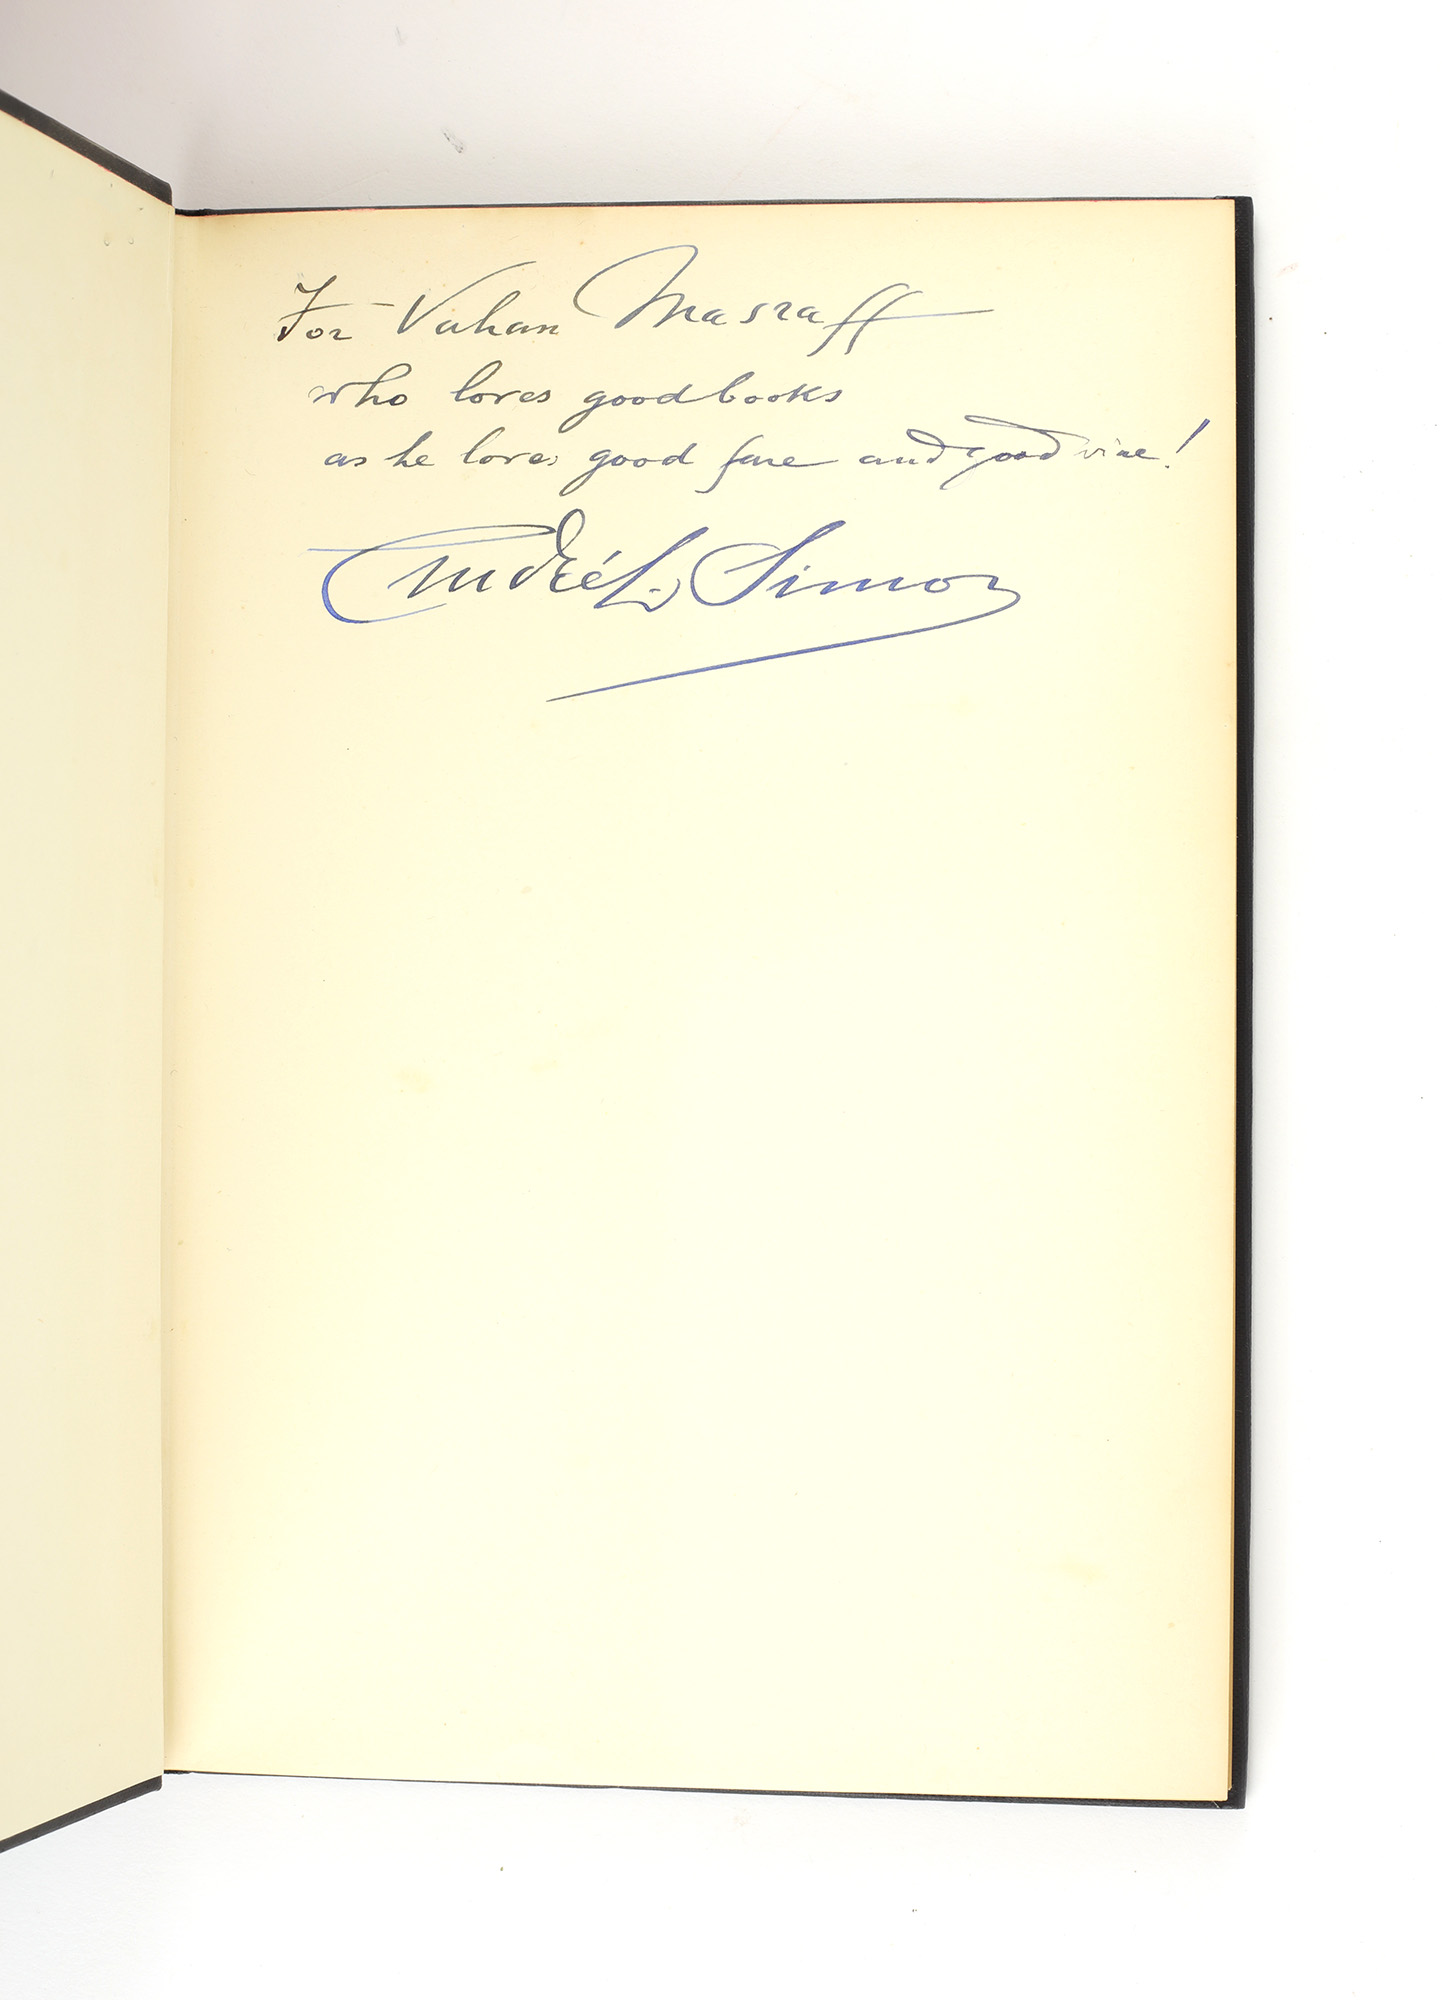 For Vahan Masraff
who loves good books
as he loves good fare and good wine!
André L. Simon